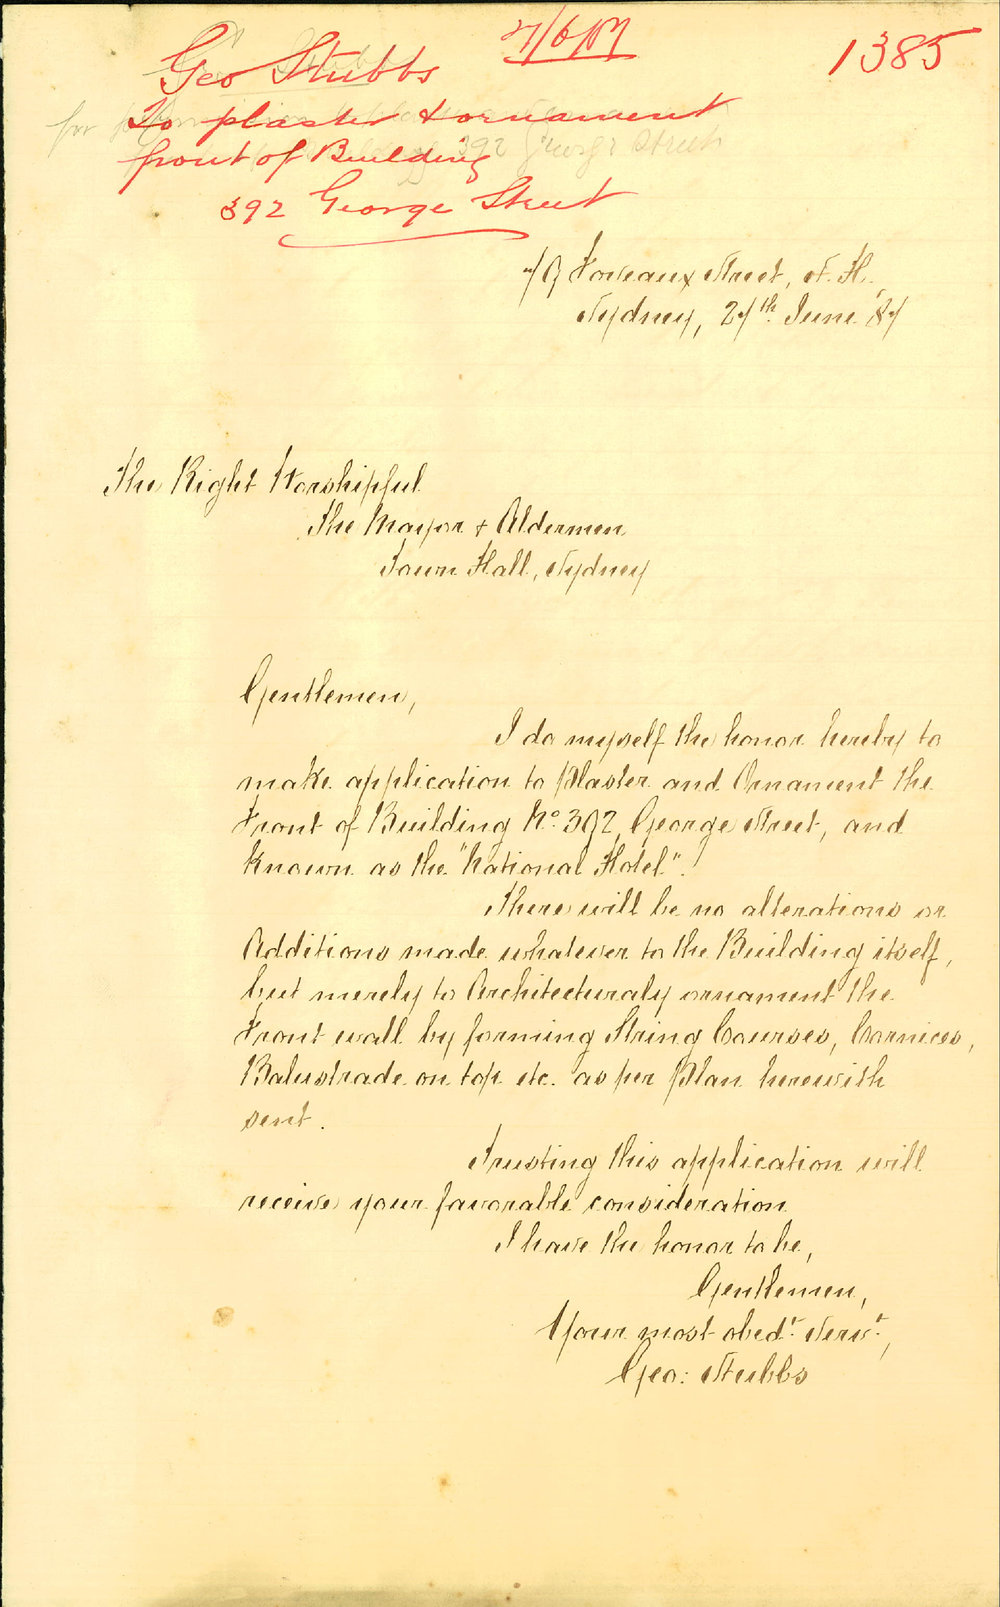 27/6/87
1385
Geo Stubbs
To plaster & ornament
for
392 George Street
front of Building
392 George Street
79 Foveaux Street, S. H.,
Sydney, 27th June '87
The Right Worshipful
The Mayor & Aldermen
Town Hall, Sydney
Gentlemen,
I do myself the honor hereby to
make application to Plaster and Ornament the
Front of Building No. 392 George Street, and
known as the "National Hotel".
There will be no alterations or
Additions made whatever to the Building itself,
but merely to Architecturaly ornament the
Front wall by forming String Courses, Cornices,
Balustrade on top etc. as per Plan herewith
sent.
Trusting this application will
receive your favorable consideration
I have the honor to be,
Gentlemen,
Your most obedt. Servt.,
Geo: Stubbs